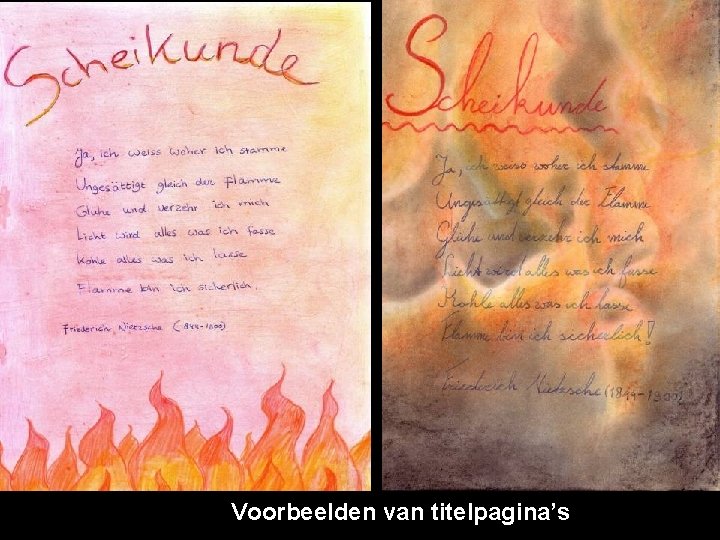 Scheikunde
Ja, ich weiss woher ich stamme
Ungesättigt gleich der Flamme
Glühe und verzehr ich mich
Licht wird alles was ich fasse
Kohle alles was ich lasse
Flamme bin ich sicherlich.
Friederich Nietzsche (1844-1900)
Scheikunde
Ja, ich weiss woher ich stamme
Ungesättigt gleich der Flamme
Glühe und verzehr ich mich
Licht wird alles was ich fasse
Kohle alles was ich lasse
Flamme bin ich sicherlich!
Friederich Nietzsche (1844-1900)
Voorbeelden van titelpagina's